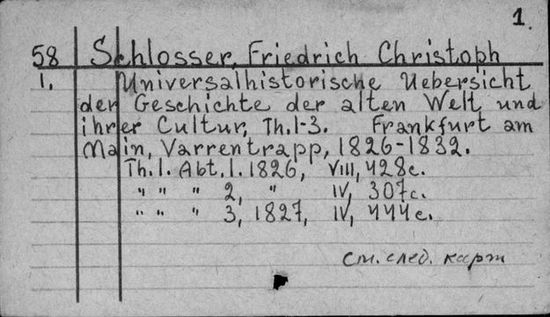 1.
58 Schlosser, Friedrich Christoph
1. Universalhistorische Uebersicht
der Geschichte der alten Welt und
ihrer Cultur, Th.1-3. Frankfurt am
Main, Varrentrapp, 1826-1832.
Th.1. Abt.1. 1826, VIII, 428c.
" " " 2, " IV, 307c.
" " " 3, 1827, IV, 444c.
См. след. карт